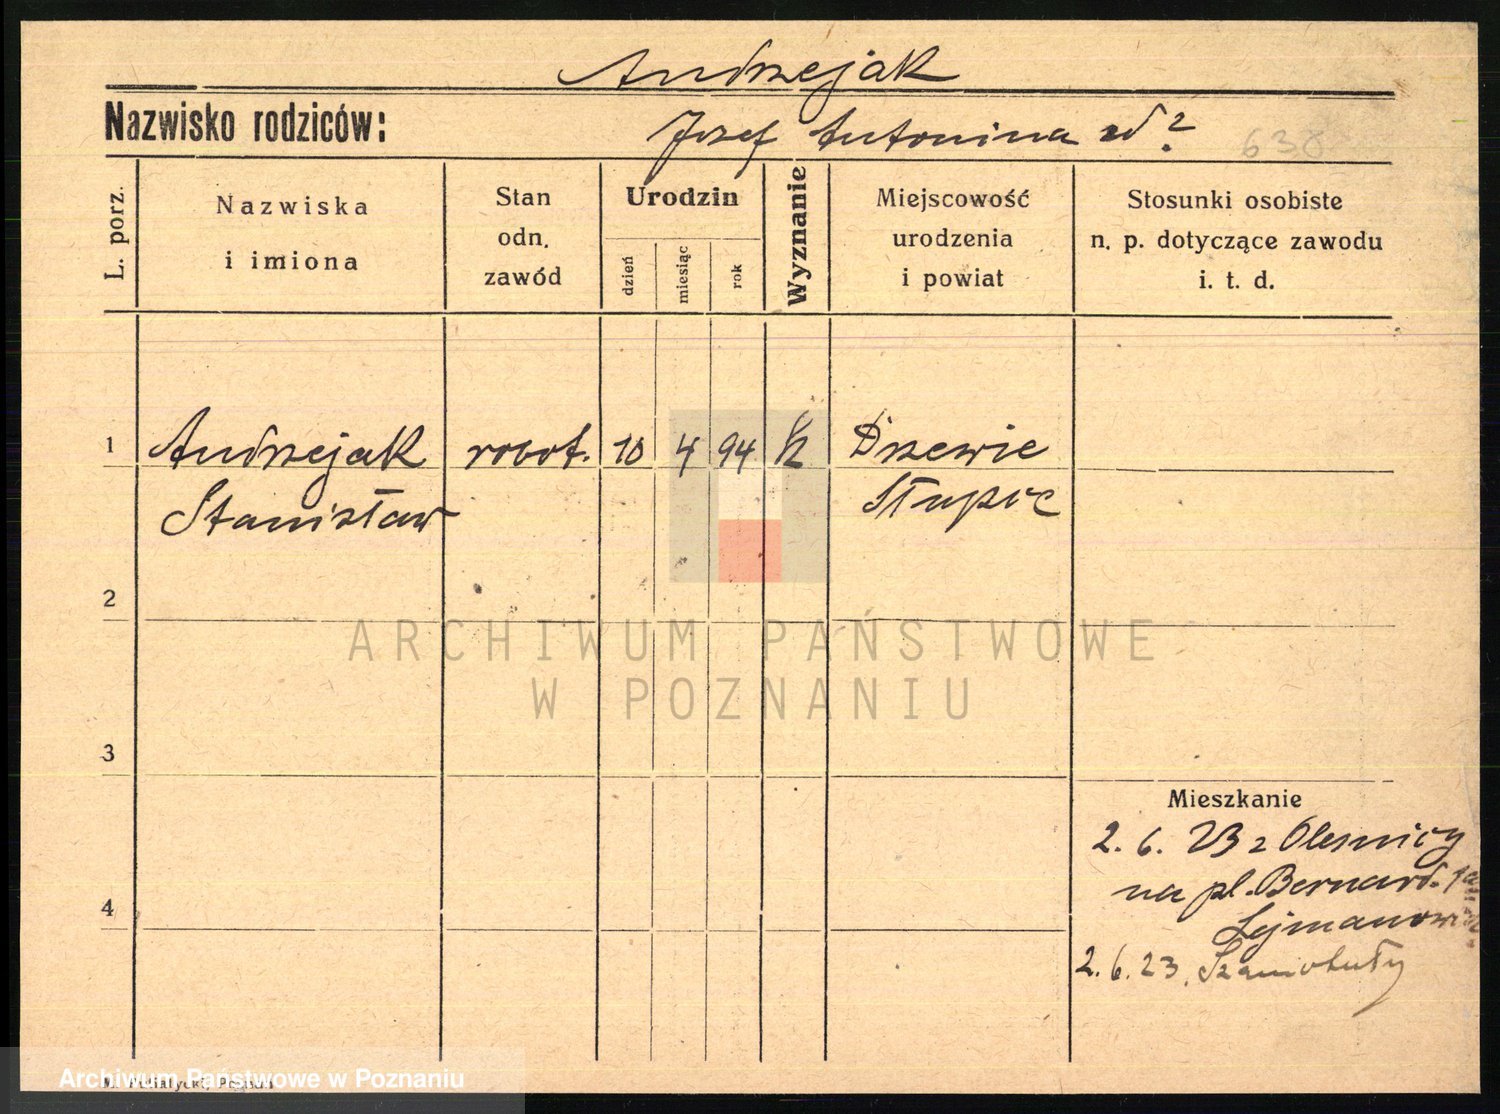 Andrzejak
Nazwisko rodziców:
Józef Antonina zd?
638
L. porz.
Nazwiska
i imiona
Stan
odn.
zawód
Urodzin
dzień
miesiąc
rok
Wyznanie
Miejscowość
urodzenia
i powiat
Stosunki osobiste
n. p. dotyczące zawodu
i. t. d.
1
Andrzejak robot. 10 4 94 k Drzewie
Stanisław Słupce
2
ARCHIWUM PAŃSTWOWE
W POZNANIU
3
Mieszkanie
2. 6. 23 z Olesnicy
na pl. Bernard. 1a
4
Lejmanowicz
2. 6. 23. Szamotuły
Archiwum Państwowe w Poznaniu